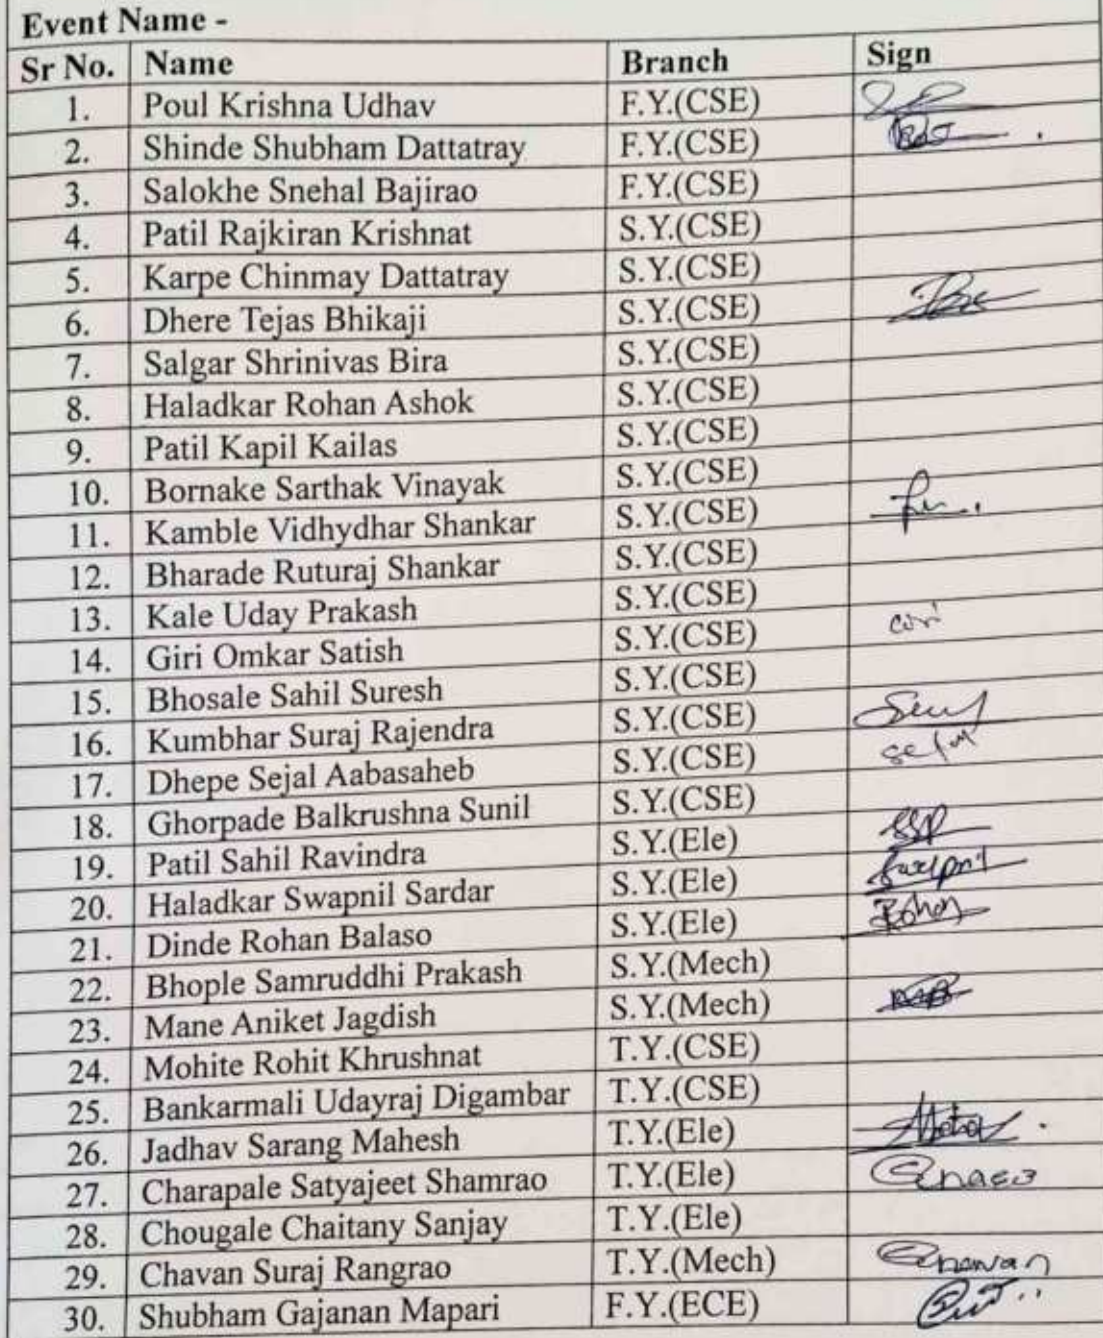 Event Name -
Sr No. Name Branch Sign
1. Poul Krishna Udhav F.Y.(CSE)
2. Shinde Shubham Dattatray F.Y.(CSE)
3. Salokhe Snehal Bajirao F.Y.(CSE)
4. Patil Rajkiran Krishnat S.Y.(CSE)
5. Karpe Chinmay Dattatray S.Y.(CSE)
6. Dhere Tejas Bhikaji S.Y.(CSE)
7. Salgar Shrinivas Bira S.Y.(CSE)
8. Haladkar Rohan Ashok S.Y.(CSE)
9. Patil Kapil Kailas S.Y.(CSE)
10. Bornake Sarthak Vinayak S.Y.(CSE)
11. Kamble Vidhydhar Shankar S.Y.(CSE)
12. Bharade Ruturaj Shankar S.Y.(CSE)
13. Kale Uday Prakash S.Y.(CSE)
14. Giri Omkar Satish S.Y.(CSE)
15. Bhosale Sahil Suresh S.Y.(CSE)
16. Kumbhar Suraj Rajendra S.Y.(CSE)
17. Dhepe Sejal Aabasaheb S.Y.(CSE)
18. Ghorpade Balkrushna Sunil S.Y.(CSE)
19. Patil Sahil Ravindra S.Y.(Ele)
20. Haladkar Swapnil Sardar S.Y.(Ele)
21. Dinde Rohan Balaso S.Y.(Ele) Rohan
22. Bhople Samruddhi Prakash S.Y.(Mech)
23. Mane Aniket Jagdish S.Y.(Mech)
24. Mohite Rohit Khrushnat T.Y.(CSE)
25. Bankarmali Udayraj Digambar T.Y.(CSE)
26. Jadhav Sarang Mahesh T.Y.(Ele)
27. Charapale Satyajeet Shamrao T.Y.(Ele)
28. Chougale Chaitany Sanjay T.Y.(Ele)
29. Chavan Suraj Rangrao T.Y.(Mech)
30. Shubham Gajanan Mapari F.Y.(ECE)